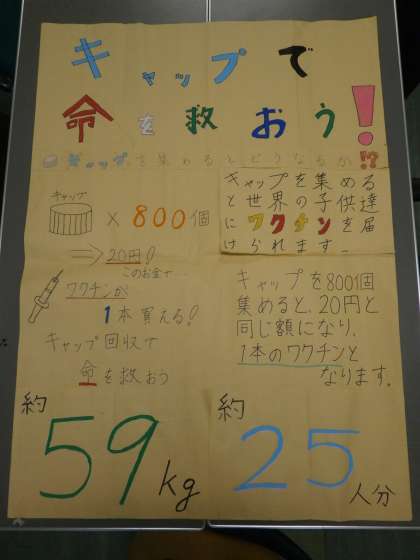 キャップで
命を救おう!
キャップを集めるとどうなるか!?
キャップ
×800個
⇒20円!
このお金で…
ワクチンが
1本買える!
キャップ回収で
命を救おう
キャップを集める
と世界の子供達
にワクチンを届
けられます。
キャップを800個
集めると、20円と
同じ額になり、
1本のワクチンと
なります。
約
59kg
約
25人分